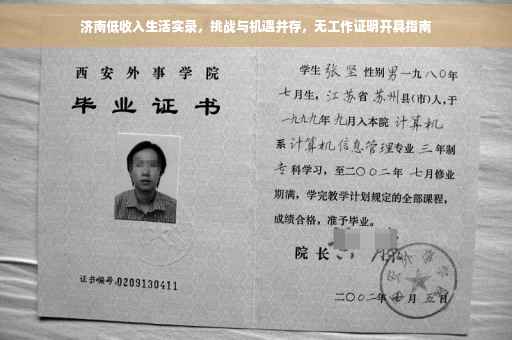 济南低收入生活实录，挑战与机遇并存，无工作证明开具指南
西安外事学院
毕业证书
证书编号:0209130411
学生张坚性别男一九八〇年
七月生，江苏省苏州县(市)人,于
一九九九年九月入本院计算机
系计算机信息管理专业三年制
专科学习，至二〇〇二年七月修业
期满，学完教学计划规定的全部课程，
成绩合格，准予毕业。
院长
二〇〇二年七月五日